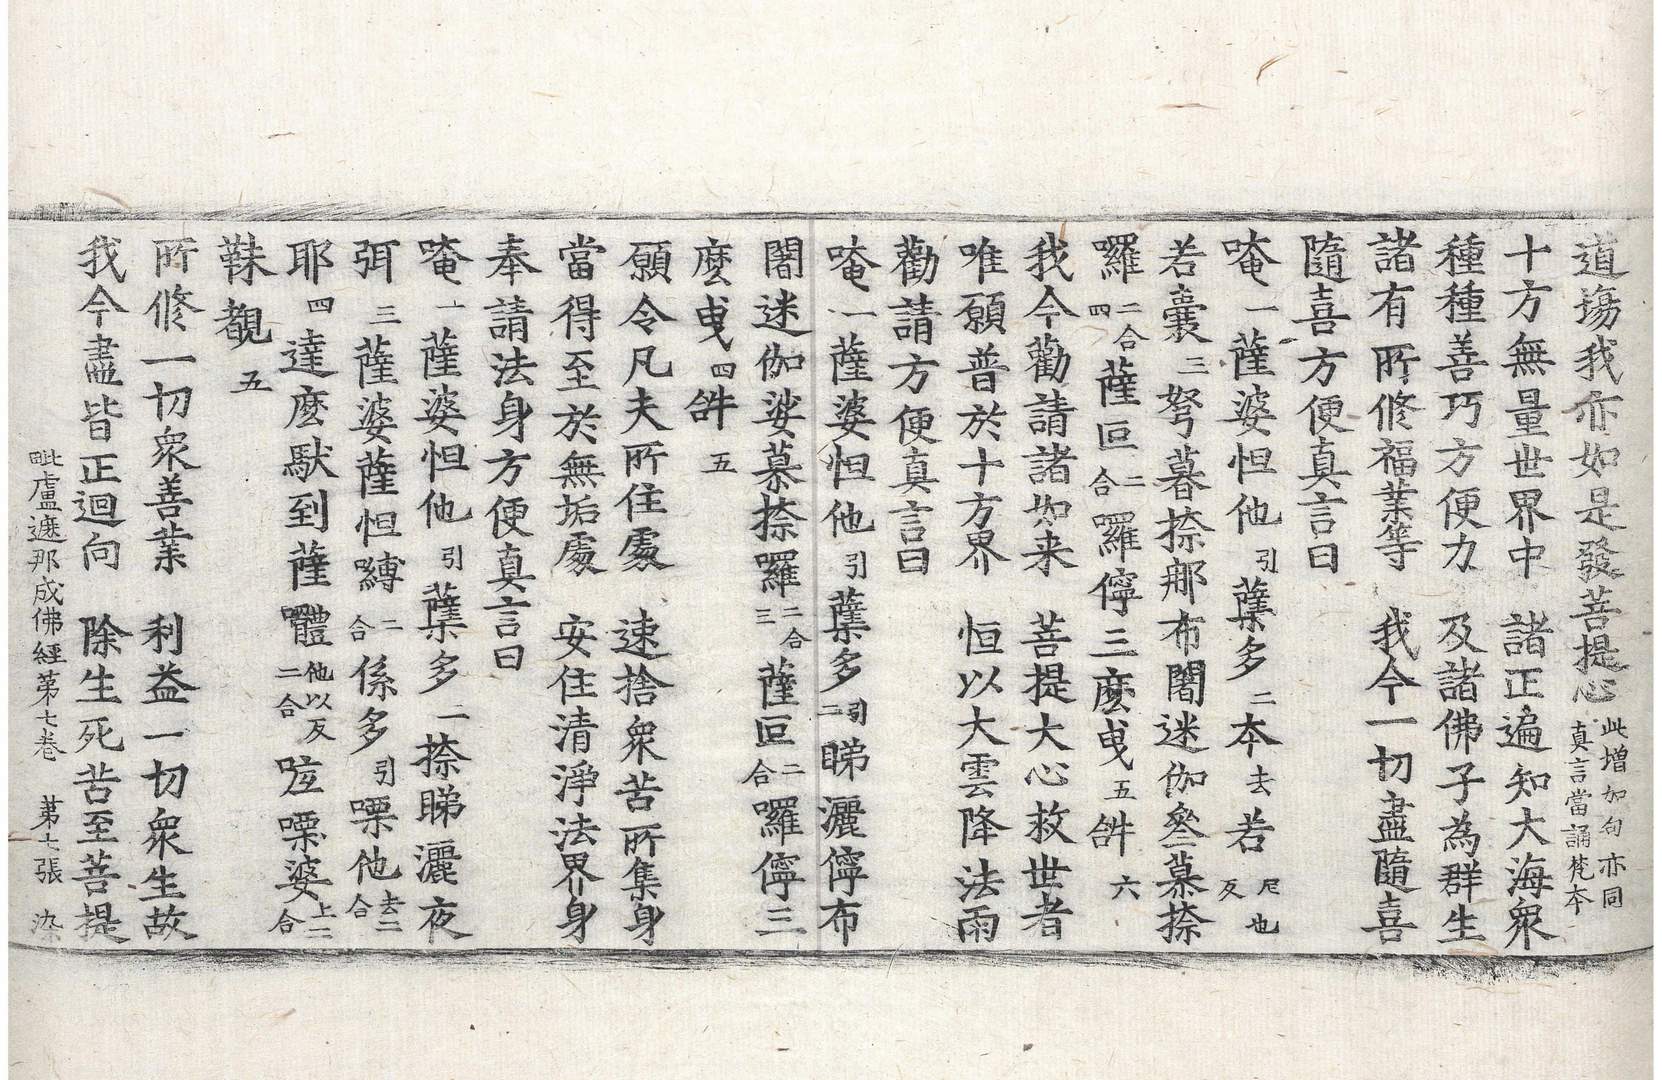 道場我亦如是發菩提心此增加句亦同真言當誦梵本
十方無量世界中 諸正遍知大海衆
種種善巧方便力 及諸佛子為群生
諸有所修福業等 我今一切盡隨喜
隨喜方便真言曰
唵一薩婆怛他引蘖多二本去若尼也反
若囊三弩暮捺那布闍迷伽叅慕捺
囉二合四薩叵二合囉儜三麽曳五𤙖六
我今勸請諸如来 菩提大心救世者
唯願普於十方界 恒以大雲降法雨
勸請方便真言曰
唵一薩婆怛他引蘖多引二睇灑儜布
闍迷伽娑慕捺囉二合三薩叵二合囉儜三
麽曳四𤙖五
願令凡夫所住處 速捨衆苦所集身
當得至於無垢處 安住清淨法界身
奉請法身方便真言曰
唵一薩婆怛他引蘖多二捺睇灑夜
弭三薩婆薩怛嚩二合係多引㗚他去二合
耶四達麽馱到薩體他以反二合㗚婆上二合
靺覩五
所修一切衆善業 利益一切衆生故
我今盡皆正迴向 除生死苦至菩提
毗盧遮那成佛經第七卷 第七張 染